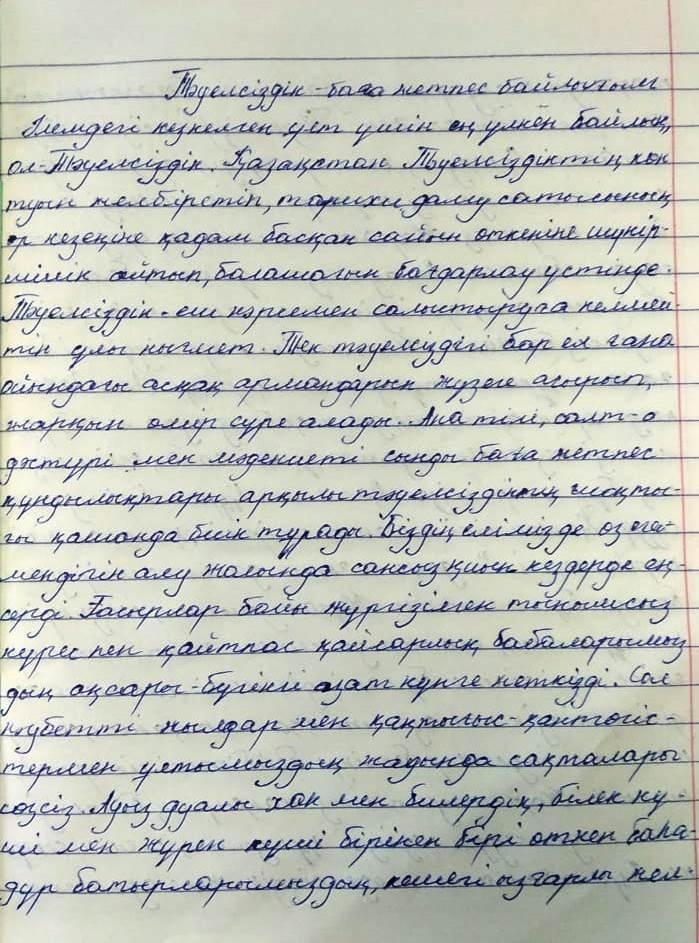 Тәуелсіздік - баға жетпес байлығым
Әлемдегі кезкелген ұлт үшін ең үлкен байлық,
ол-Тәуелсіздік. Қазақстан Тәуелсіздіктің көк
туын желбіретіп, тарихи даму сатысының
әр кезеңіне қадам басқан сайын өткеніне шүкір-
шілік айтып, болашағын бағдарлау үстінде.
Тәуелсіздік - еш нәрсемен салыстыруға келмей-
тін ұлы нығмет. Тек тәуелсіздігі бар ел ғана
ойындағы асқақ армандарын жүзеге асырып,
жарқын өмір сүре алады. Ана тілі, салт-
дәстүрі мен мәдениеті сынды баға жетпес
құндылықтары арқылы тәуелсіздіктің шоқты-
ғы қашанда биік тұрады. Біздің елімізде өз еге-
мендігін алу жолында сансыз қиын кездерде ең-
серді. Ғасырлар бойы жүргізілген тынымсыз
күрес пен қайтпас қайсарлық, бабаларымыз
дың ақсары-бүгінгі азат күнге жеткізді. Сол
нәубетті жылдар мен қақтығыс-қантөгіс-
термен ұлтымыздың жадында сақталары
сөзсіз. Ауыз дуалы хан мен билердің, білек кү-
ші мен жүрек күші бірінен бірі өткен баһа-
дүр батырларымыздың, кешегі ызғарлы жел-